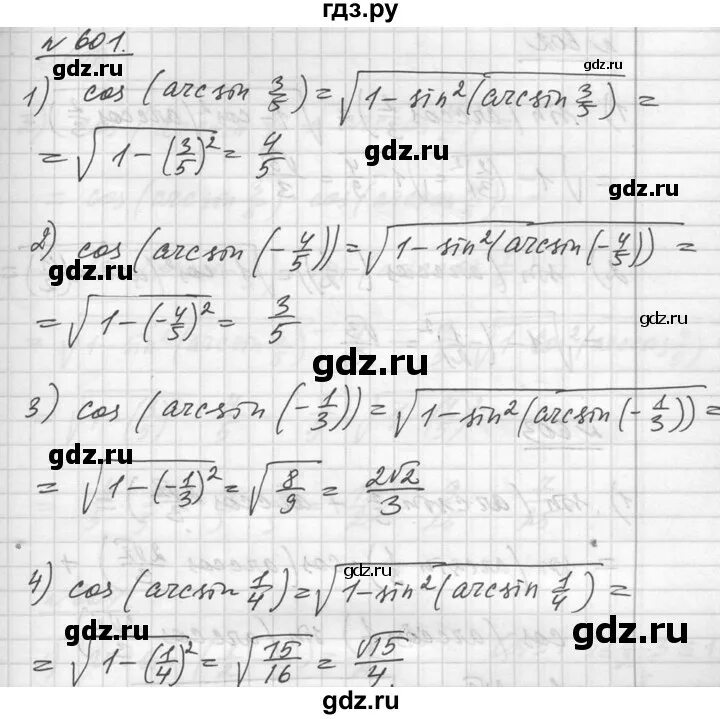 гдз.ру
№ 601.
gdz.ru
gdz.ru
1) cos (arcsin 3/5) = √(1 - sin²(arcsin 3/5)) =
= √(1 - (3/5)²) = 4/5
gdz.ru
gdz.ru
2) cos (arcsin (-4/5)) = √(1 - sin²(arcsin (-4/5))) =
gdz.ru
= √(1 - (-4/5)²) = 3/5
gdz.ru
gdz.ru
gdz.ru
3) cos (arcsin (-1/3)) = √(1 - sin²(arcsin (-1/3))) =
gdz.ru
gdz.ru
= √(1 - (-1/3)²) = √(8/9) = 2√2/3
gdz.ru
4) cos (arcsin 1/4) = √(1 - sin²(arcsin 1/4)) =
gdz.ru
gdz.ru
= √(1 - (1/4)²) = √(15/16) = √15/4.
gdz.ru